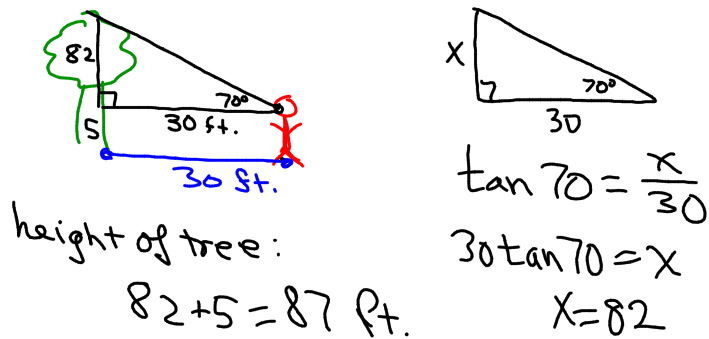 82
70°
30 ft.
5
30 ft.
height of tree:
82+5=87 ft.
x
70°
30
tan 70 = x/30
30tan70=x
x=82